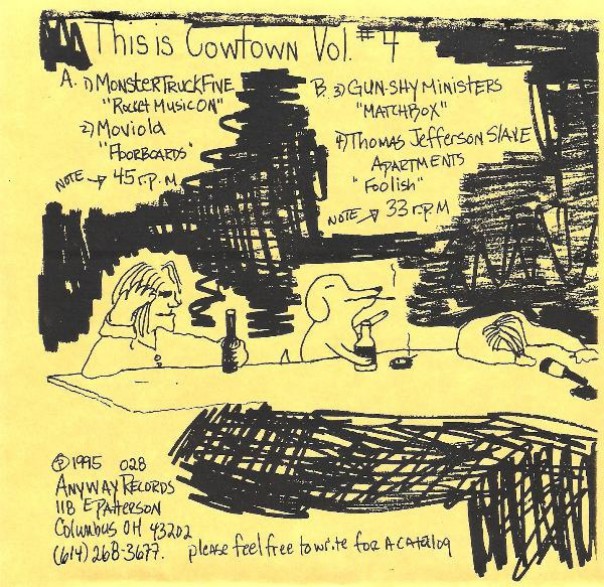 This is Cowtown Vol. #4
A. 1) MONSTERTRUCKFIVE
"ROCKET MUSIC ON"
2) Moviola
"FLOORBOARDS"
NOTE → 45 r.p.m
B. 3) GUN-SHY MINISTERS
"MATCHBOX"
4) Thomas Jefferson SLAVE
APARTMENTS
"Foolish"
NOTE → 33 r.p.M
℗ 1995 028
ANYWAY RECORDS
118 E PATTERSON
Columbus OH 43202
(614) 268-3677. please feel free to write for A CATAlog